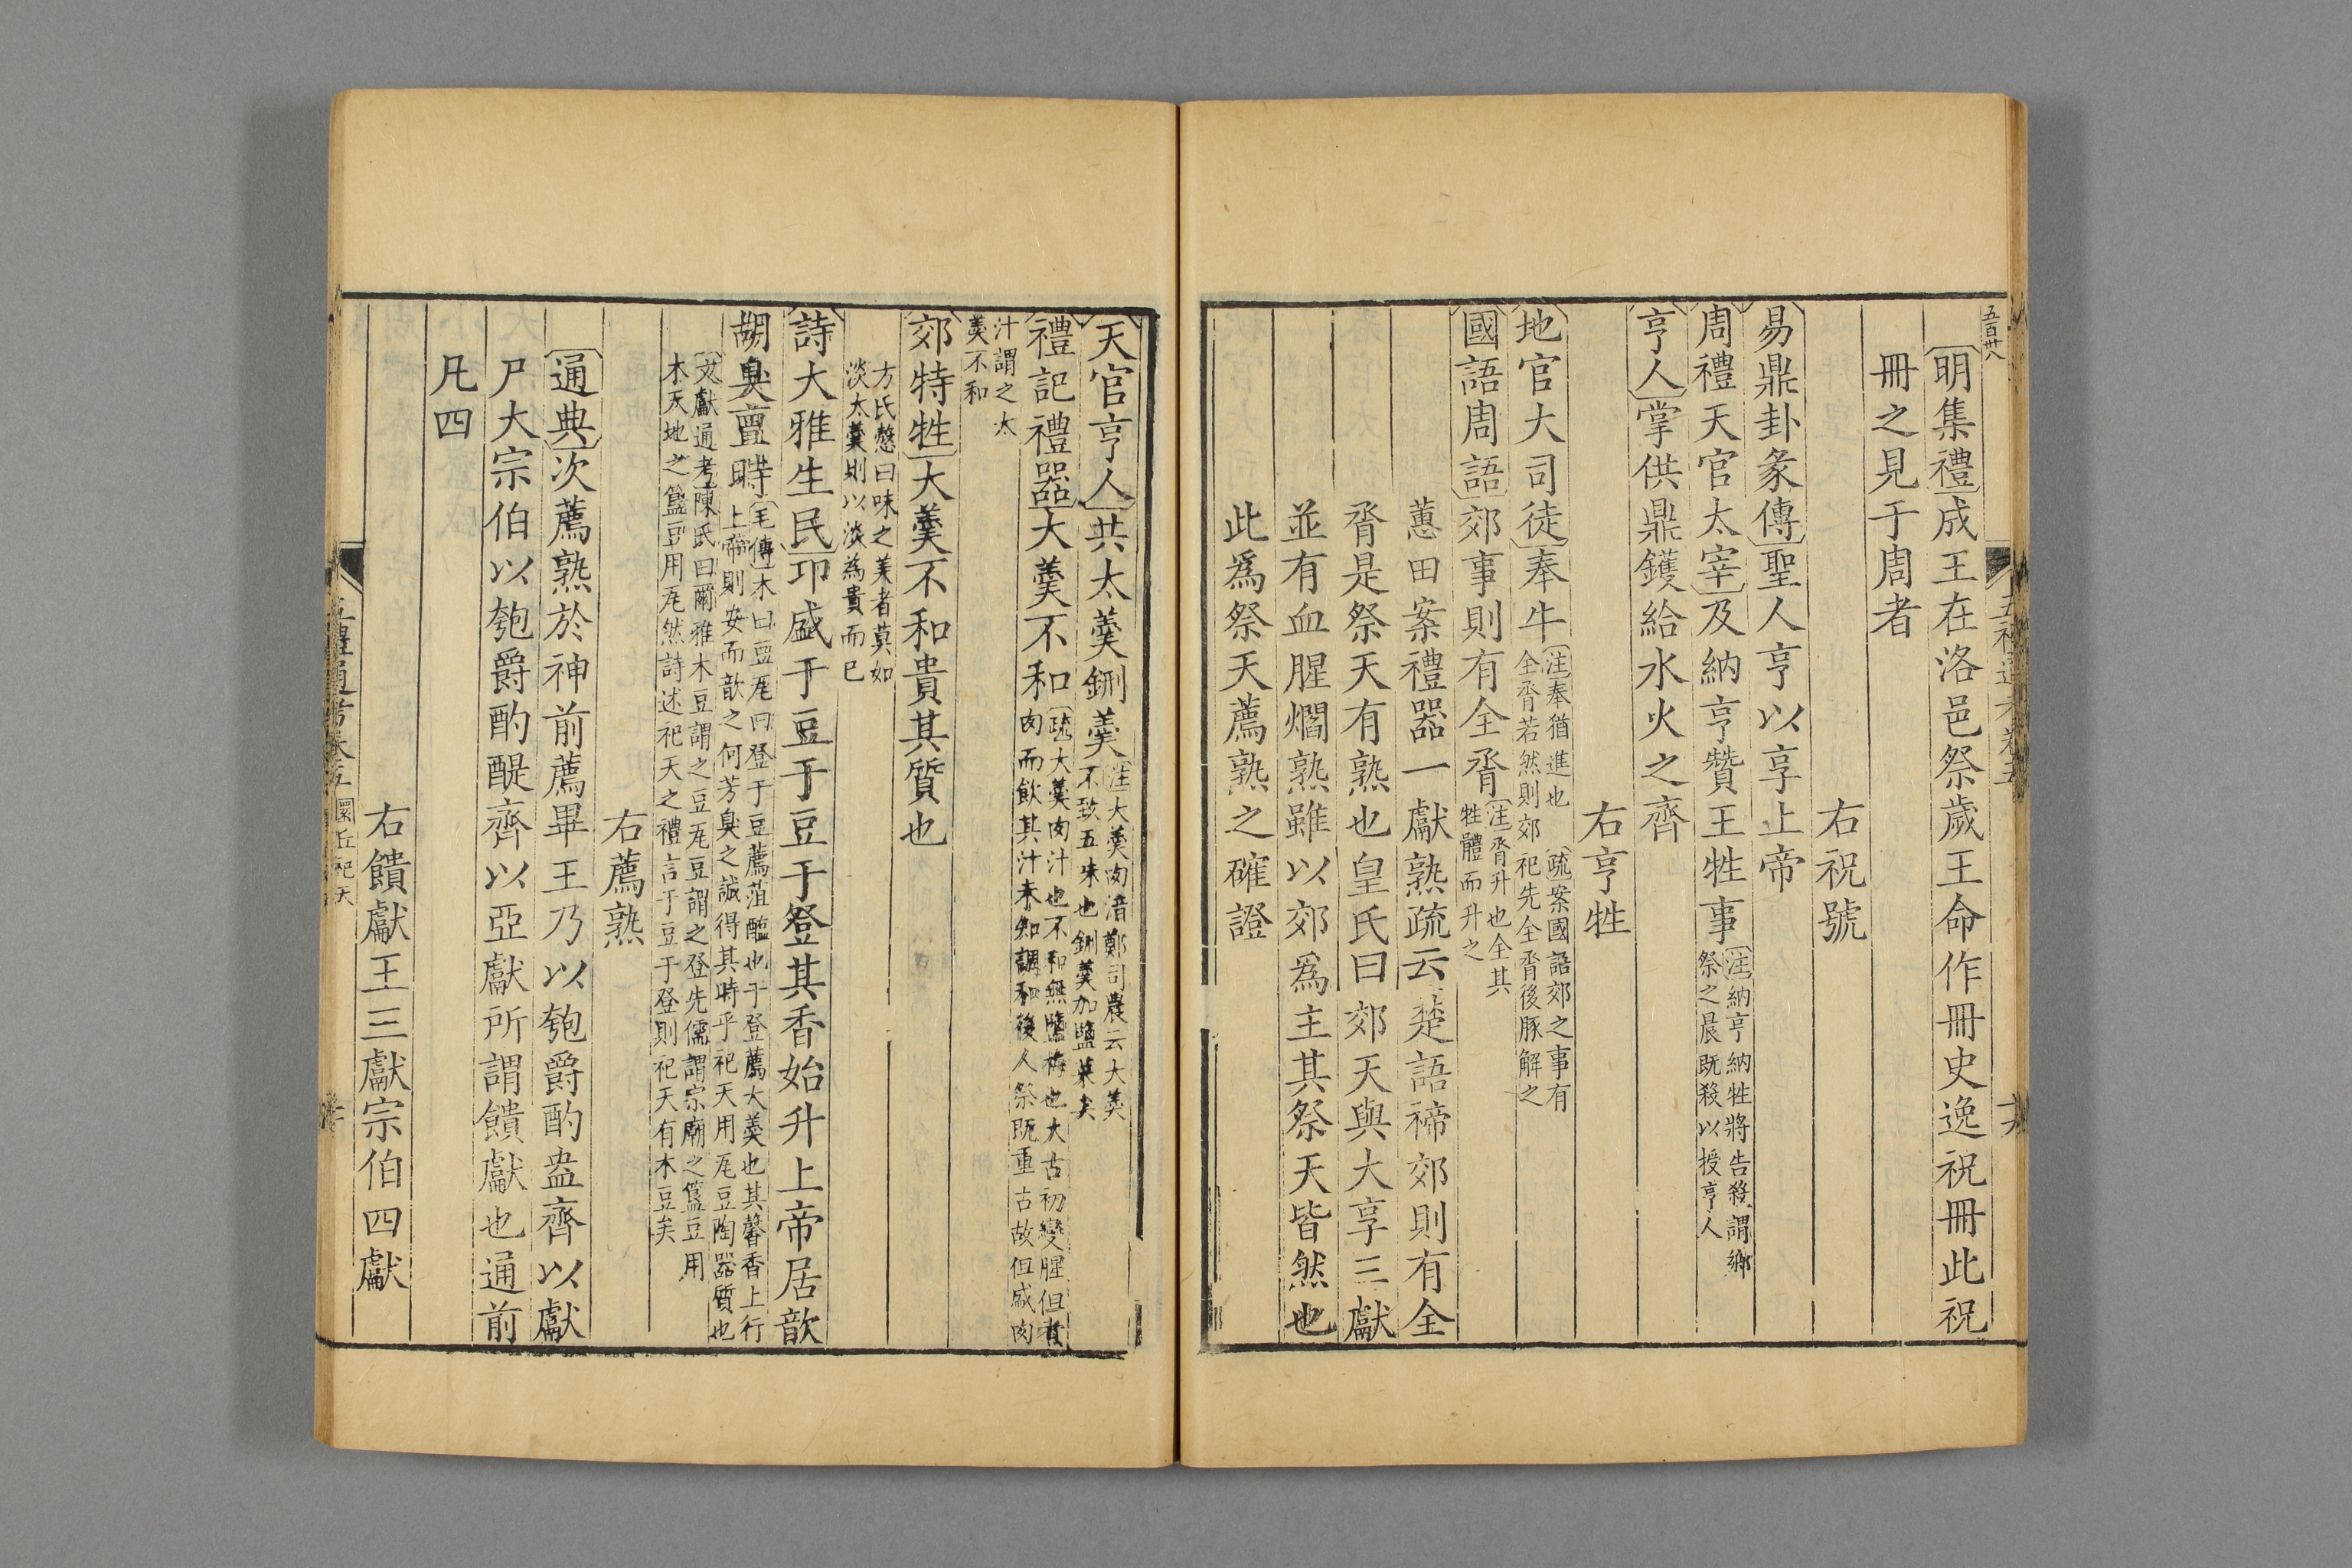 五百卅八
明集禮成王在洛邑祭歲王命作冊史逸祝冊此祝
冊之見于周者
右祝號
易鼎卦彖傳聖人亨以享上帝
周禮天官太宰及納亨贊王牲事注納亨納牲將告殺謂鄉
祭之晨既殺以授亨人
亨人掌供鼎鑊給水火之齊
右亨牲
地官大司徒奉牛注奉猶進也 疏案國語郊之事有
全脀若然則郊祀先全脀後豚解之
國語周語郊事則有全脀注脀升也全其
牲體而升之
蕙田案禮器一獻熟疏云楚語禘郊則有全
脀是祭天有熟也皇氏曰郊天與大享三獻
並有血腥爓熟雖以郊爲主其祭天皆然也
此爲祭天薦熟之確證
天官亨人共太羹鉶羹注大羹肉湆鄭司農云大羹
不致五味也鉶羹加鹽菜矣
禮記禮器大羹不和疏大羹肉汁也不和無鹽梅也大古初變腥但煮
肉而飲其汁未知調和後人祭既重古故但盛肉
汁謂之太
羹不和
郊特牲大羹不和貴其質也
方氏慤曰味之美者莫如
淡太羹則以淡為貴而已
詩大雅生民卬盛于豆于豆于登其香始升上帝居歆
胡臭亶時毛傳木曰豆瓦曰登于豆薦菹醢也于登薦大羹也其馨香上行
上帝則安而歆之何芳臭之誠得其時乎祀天用瓦豆陶器質也
文獻通考陳氏曰爾雅木豆謂之豆瓦豆謂之登先儒謂宗廟之簠豆用
木天地之簠豆用瓦然詩述祀天之禮言于豆于登則祀天有木豆矣
右薦熟
通典次薦熟於神前薦畢王乃以匏爵酌盎齊以獻
尸大宗伯以匏爵酌醍齊以亞獻所謂饋獻也通前
凡四
右饋獻王三獻宗伯四獻
五禮通考卷五 圜丘祀天